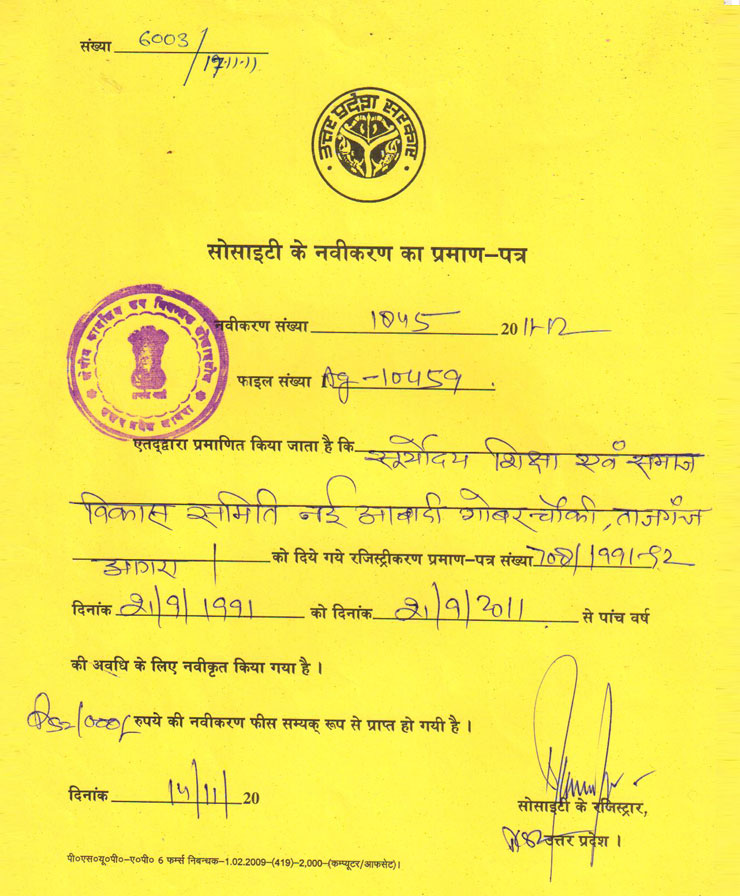 संख्या 6003/
17-11-11
उत्तर प्रदेश सरकार
सोसाइटी के नवीकरण का प्रमाण–पत्र
नवीकरण संख्या 1045 2011-12
फाइल संख्या Ag-10459.
एतद्द्वारा प्रमाणित किया जाता है कि सूर्योदय शिक्षा एवं समाज
विकास समिति नई आबादी गोबरचौकी, ताजगंज
आगरा को दिये गये रजिस्ट्रीकरण प्रमाण–पत्र संख्या 708/1991-92
दिनांक 21/9/1991 को दिनांक 21/9/2011 से पांच वर्ष
की अवधि के लिए नवीकृत किया गया है ।
रुपये की नवीकरण फीस सम्यक् रूप से प्राप्त हो गयी है ।
दिनांक 14/11/20
सोसाइटी के रजिस्ट्रार,
उत्तर प्रदेश ।
पी०एस०यू०पी०–ए०पी० 6 फर्म्स निबन्धक–1.02.2009–(419)–2,000–(कम्प्यूटर/आफसेट)।